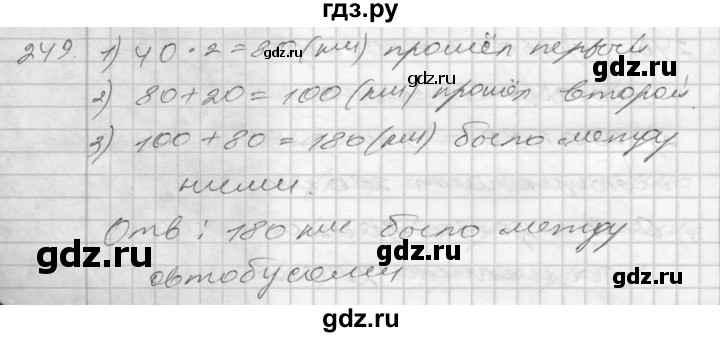 гдз.ру
249. 1) 40 · 2 = 80 (км) прошёл первый
2) 80 + 20 = 100 (км) прошёл второй.
3) 100 + 80 = 180 (км) было между
ними.
Отв: 180 км было между
gdz.ru gdz.ru
автобусами
gdz.ru
gdz.ru